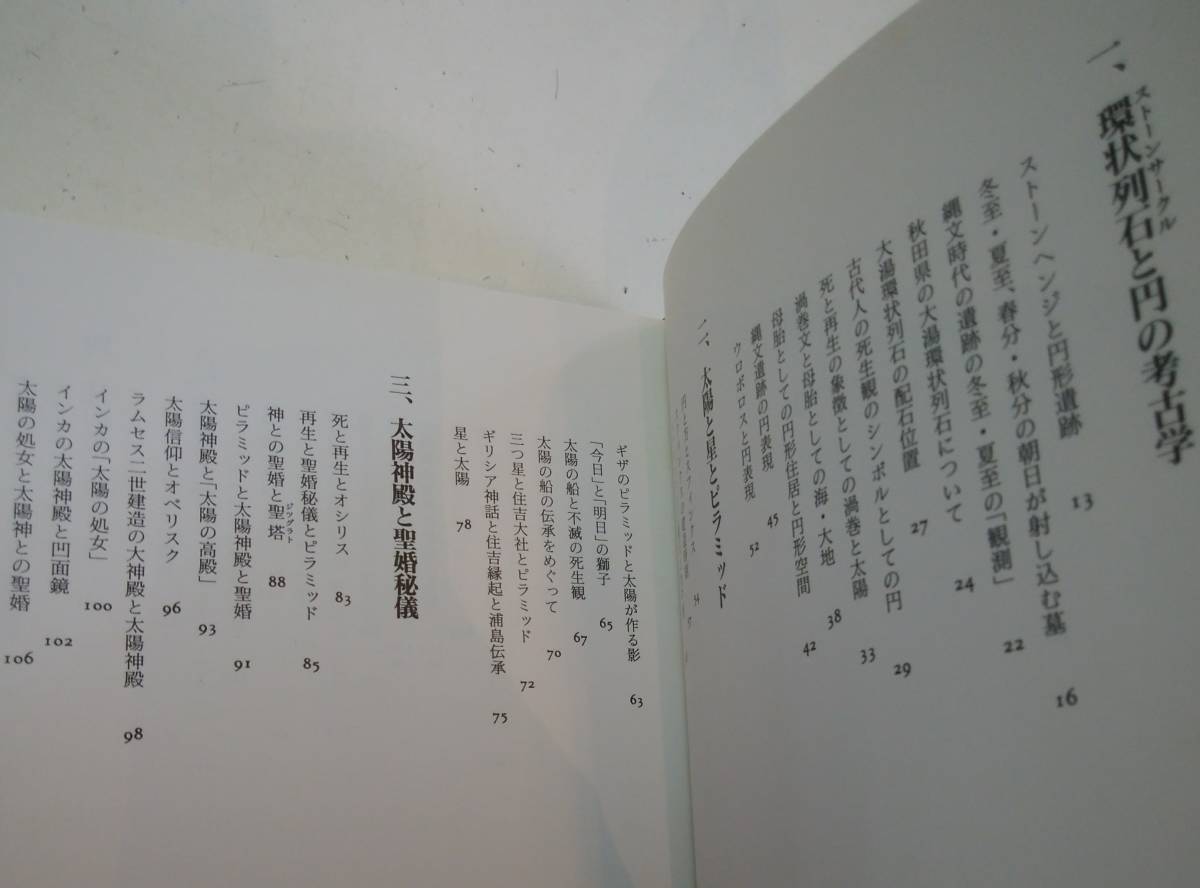 一、環状列石と円の考古学
ストーンサークル
ストーンヘンジと円形遺跡 13
冬至・夏至、春分・秋分の朝日が射し込む墓 16
縄文時代の遺跡の冬至・夏至の「観測」 22
秋田県の大湯環状列石について 24
大湯環状列石の配石位置 27
古代人の死生観のシンボルとしての円 29
死と再生の象徴としての渦巻と太陽 33
渦巻文と母胎としての海・大地 38
母胎としての円形住居と円形空間 42
縄文遺跡の円表現 45
ウロボロスと円表現 52
二、太陽と星とピラミッド
ギザのピラミッドと太陽が作る影 63
「今日」と「明日」の獅子 65
太陽の船と不滅の死生観 67
太陽の船の伝承をめぐって 70
三つ星と住吉大社とピラミッド 72
ギリシア神話と住吉縁起と浦島伝承 75
星と太陽 78
三、太陽神殿と聖婚秘儀
死と再生とオシリス 83
再生と聖婚秘儀とピラミッド 85
神との聖婚と聖塔 88
ジツグラト
ピラミッドと太陽神殿と聖婚 91
太陽神殿と「太陽の高殿」 93
太陽信仰とオベリスク 96
ラムセス二世建造の大神殿と太陽神殿 98
インカの「太陽の処女」 100
インカの太陽神殿と凹面鏡 102
太陽の処女と太陽神との聖婚 106